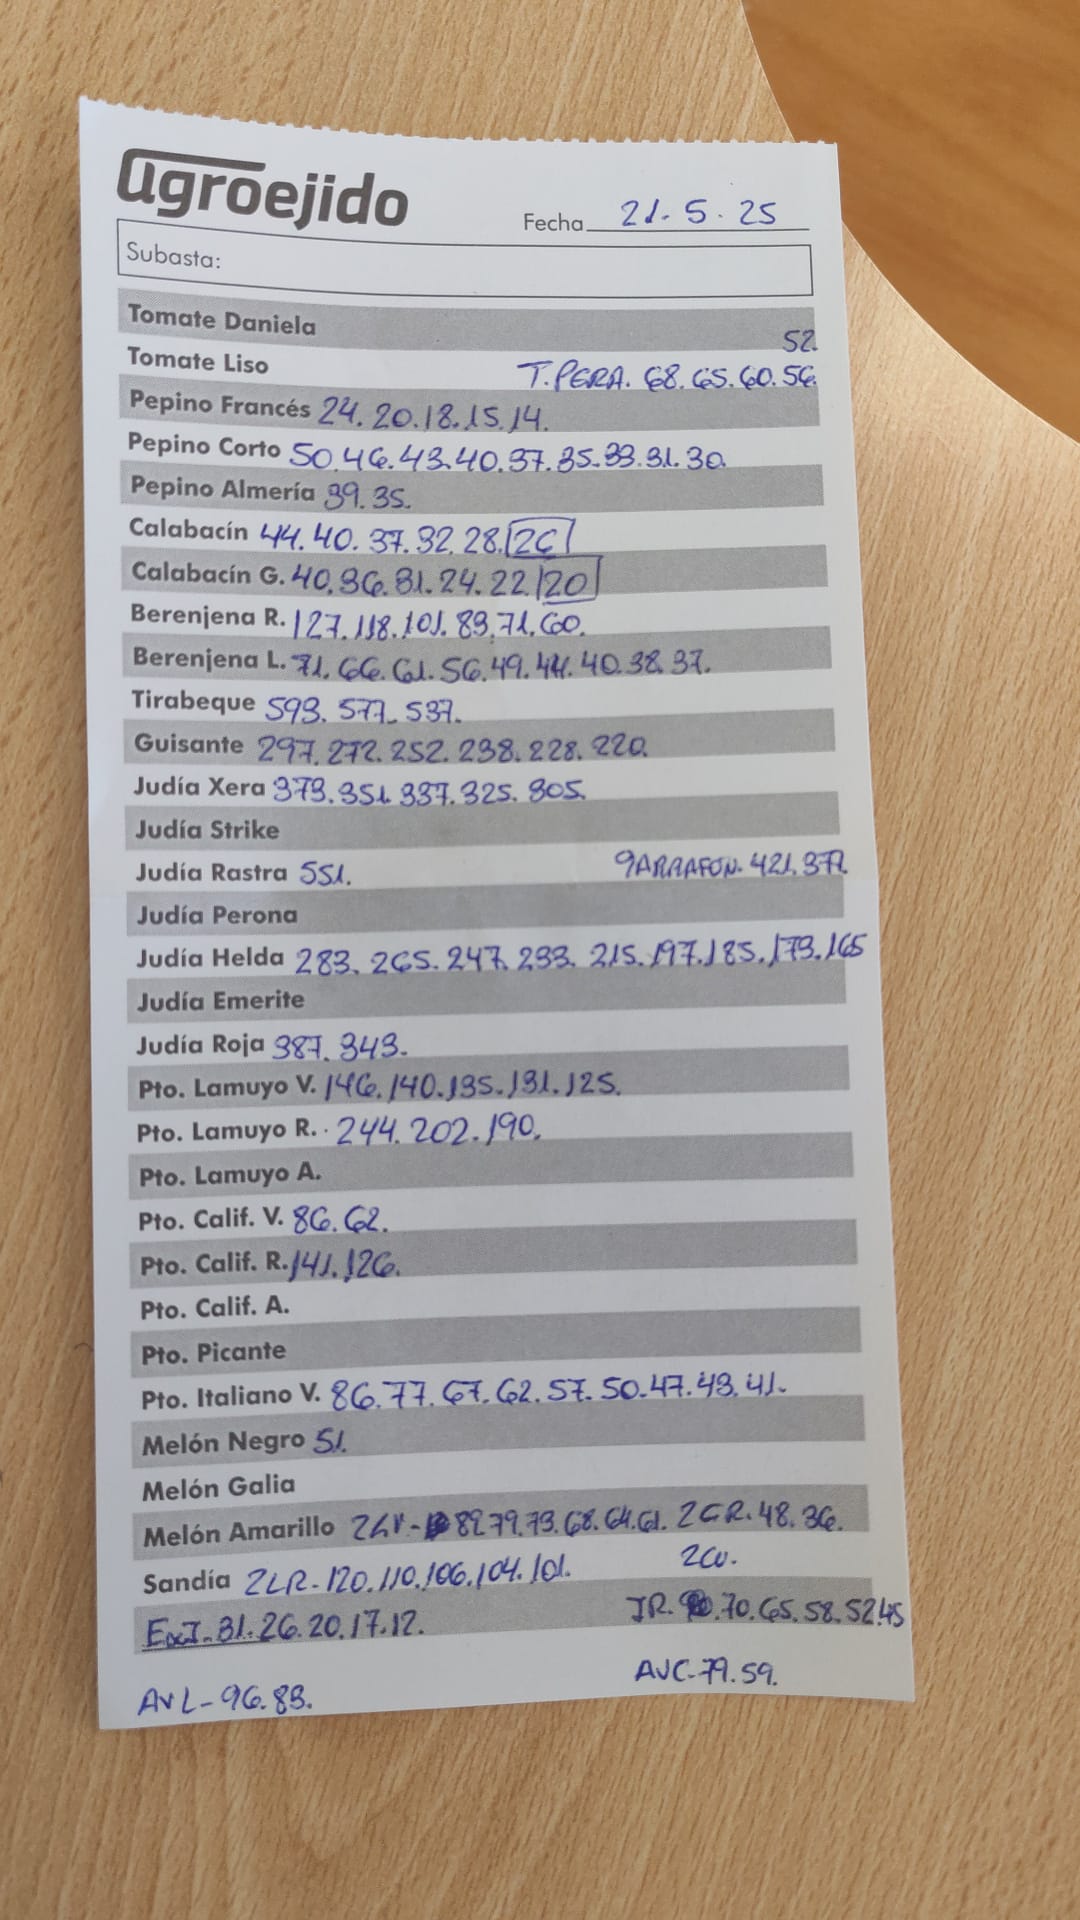 agroejido
Fecha 21. 5. 25
Subasta:
Tomate Daniela 52.
Tomate Liso T.PERA. 68. 65. 60. 56.
Pepino Francés 24. 20. 18. 15. 14.
Pepino Corto 50. 46. 43. 40. 37. 35. 33. 31. 30.
Pepino Almería 39. 35.
Calabacín 44. 40. 37. 32. 28. 26
Calabacín G. 40. 36. 31. 24. 22. 20
Berenjena R. 127. 118. 101. 83. 71. 60.
Berenjena L. 71. 66. 61. 56. 49. 44. 40. 38. 37.
Tirabeque 593. 577. 537.
Guisante 297. 272. 252. 238. 228. 220.
Judía Xera 373. 351. 337. 325. 305.
Judía Strike
Judía Rastra 551. GARRAFON. 421. 377.
Judía Perona
Judía Helda 283. 265. 247. 233. 215. 197. 185. 173. 165
Judía Emerite
Judía Roja 387. 343.
Pto. Lamuyo V. 146. 140. 135. 131. 125.
Pto. Lamuyo R. 244. 202. 190.
Pto. Lamuyo A.
Pto. Calif. V. 86. 62.
Pto. Calif. R. 141. 126.
Pto. Calif. A.
Pto. Picante
Pto. Italiano V. 86. 77. 67. 62. 57. 50. 47. 43. 41.
Melón Negro 51.
Melón Galia
Melón Amarillo 79. 73. 68. 64. 61. 2CR. 48. 36.
2CV.
Sandía 2LR - 120. 110. 106. 104. 101.
31. 26. 20. 17. 12. JR. 70. 65. 58. 52. 45
AVC - 79. 59.
AVL - 96. 83.